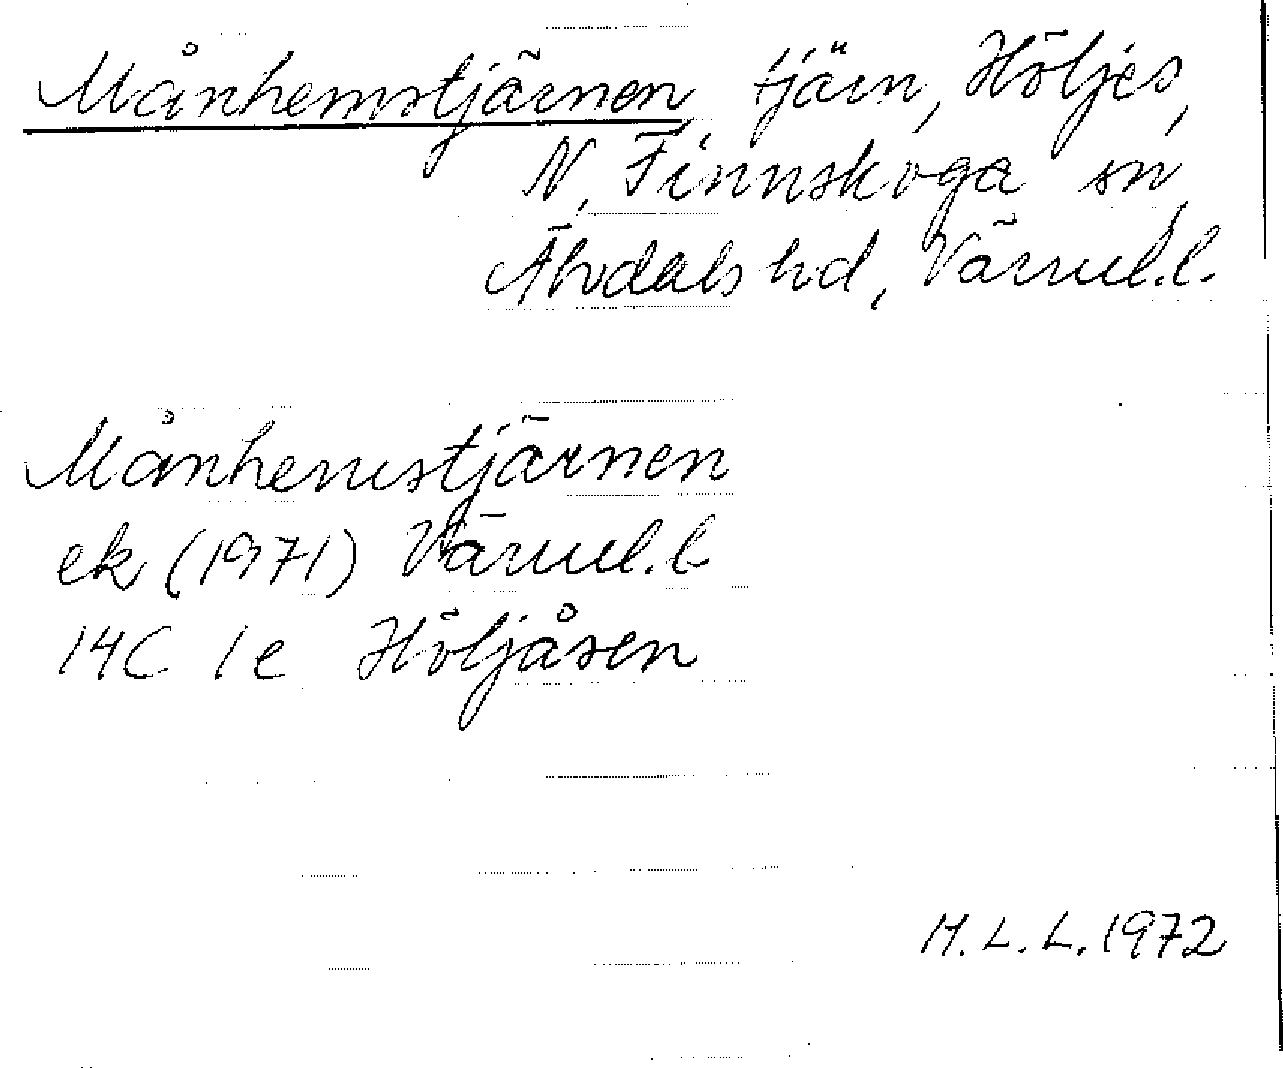 Månhemstjärnen tjärn, Höljes,
N. Finnskoga sn
Älvdals hd, Värml.l.
Månhemstjärnen
ek (1971) Värml.l.
14C 1e Höljåsen
M.L.L. 1972